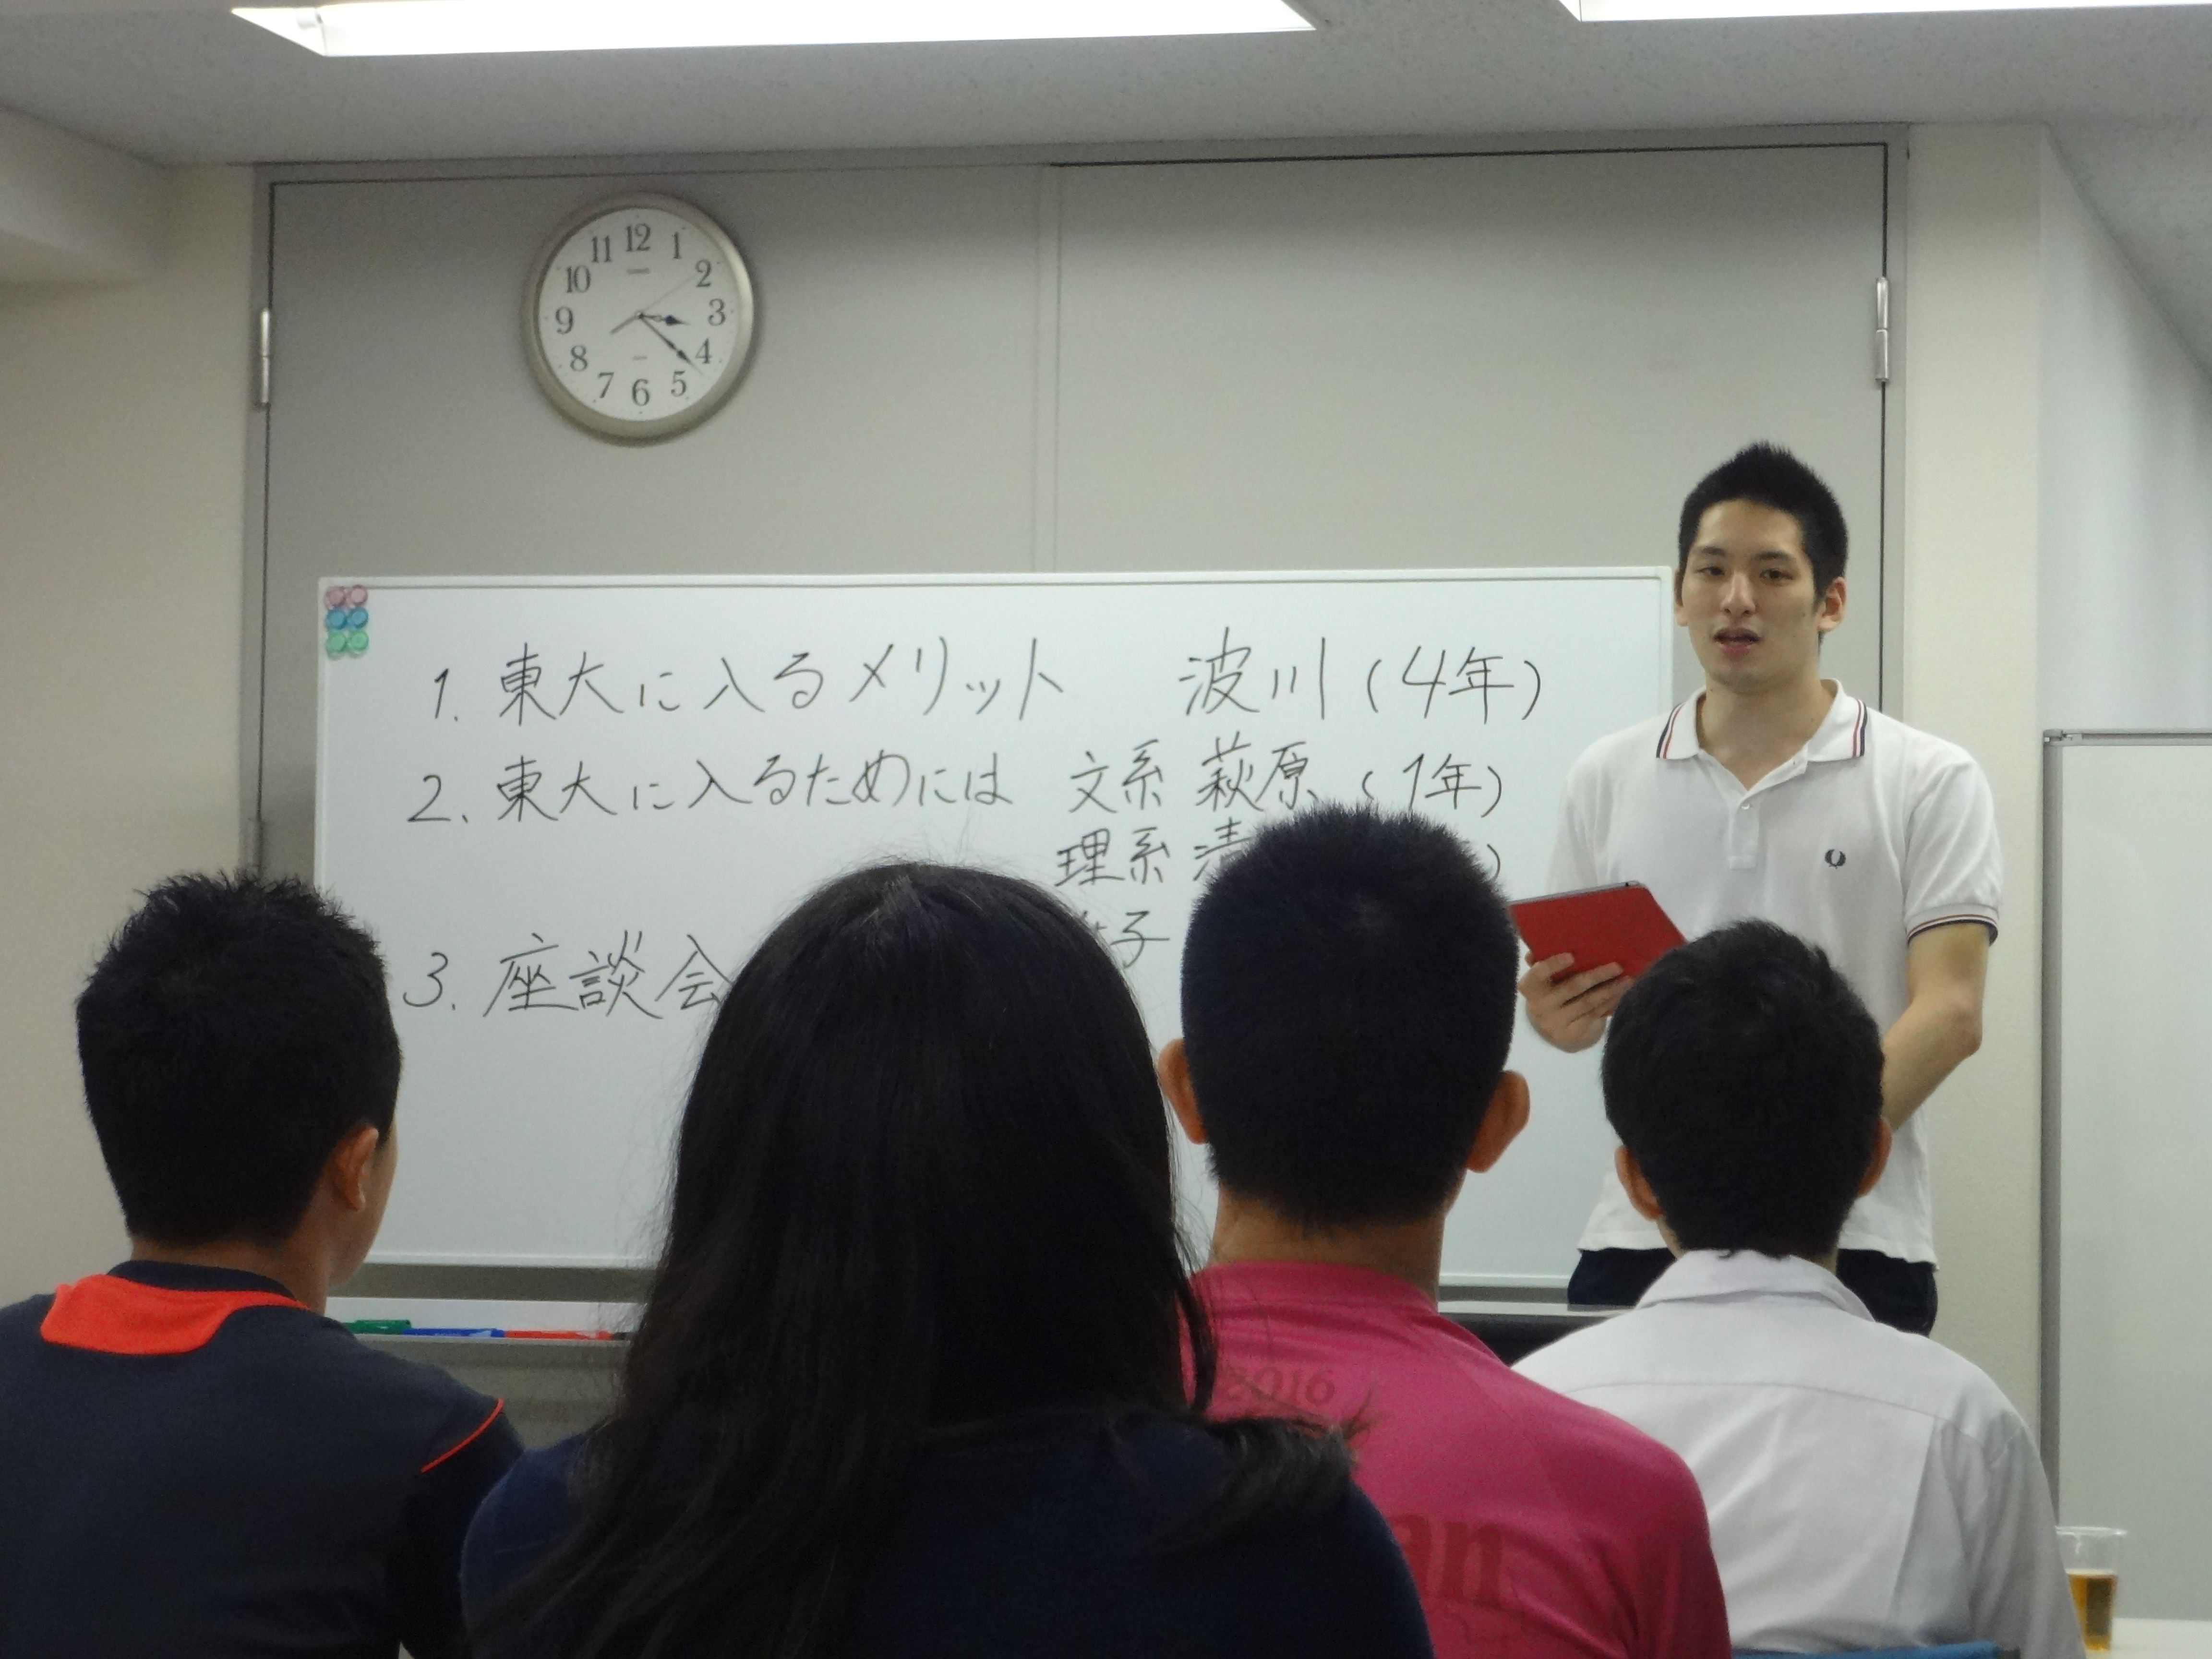 11 12 1
10 2
9 3
8 4
7 6 5
1. 東大に入るメリット 波川 (4年)
2. 東大に入るためには 文系 萩原 (1年)
理系 清 )
子
3. 座談会
2016
an